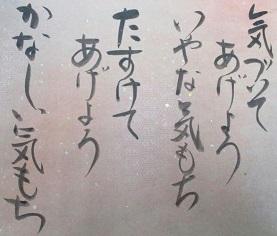 気づいて
あげよう
いやな気もち
たすけて
あげよう
かなしい気もち